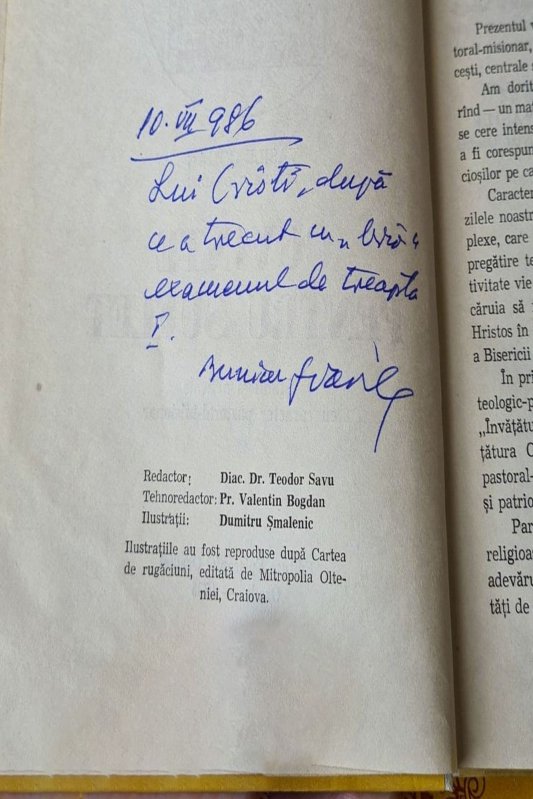 10.VII 986
Lui Cristi, după
ce a trecut cu "brio"
examenul de treapta
I.
Bunicu
Redactor: Diac. Dr. Teodor Savu
Tehnoredactor: Pr. Valentin Bogdan
Ilustrații: Dumitru Șmalenic
Ilustrațiile au fost reproduse după Cartea
de rugăciuni, editată de Mitropolia Olte-
niei, Craiova.
Prezentul
toral-misionar,
cești, centrale
Am dorit
rînd — un
se cere
a fi
cioșilor pe
zilele
plexe, care
pregătire
tivitate vie
căruia să
Hristos în
a Bisericii
În
„Învățătu
tățura
pastoral-
și
religioa
adevăru
tăți de